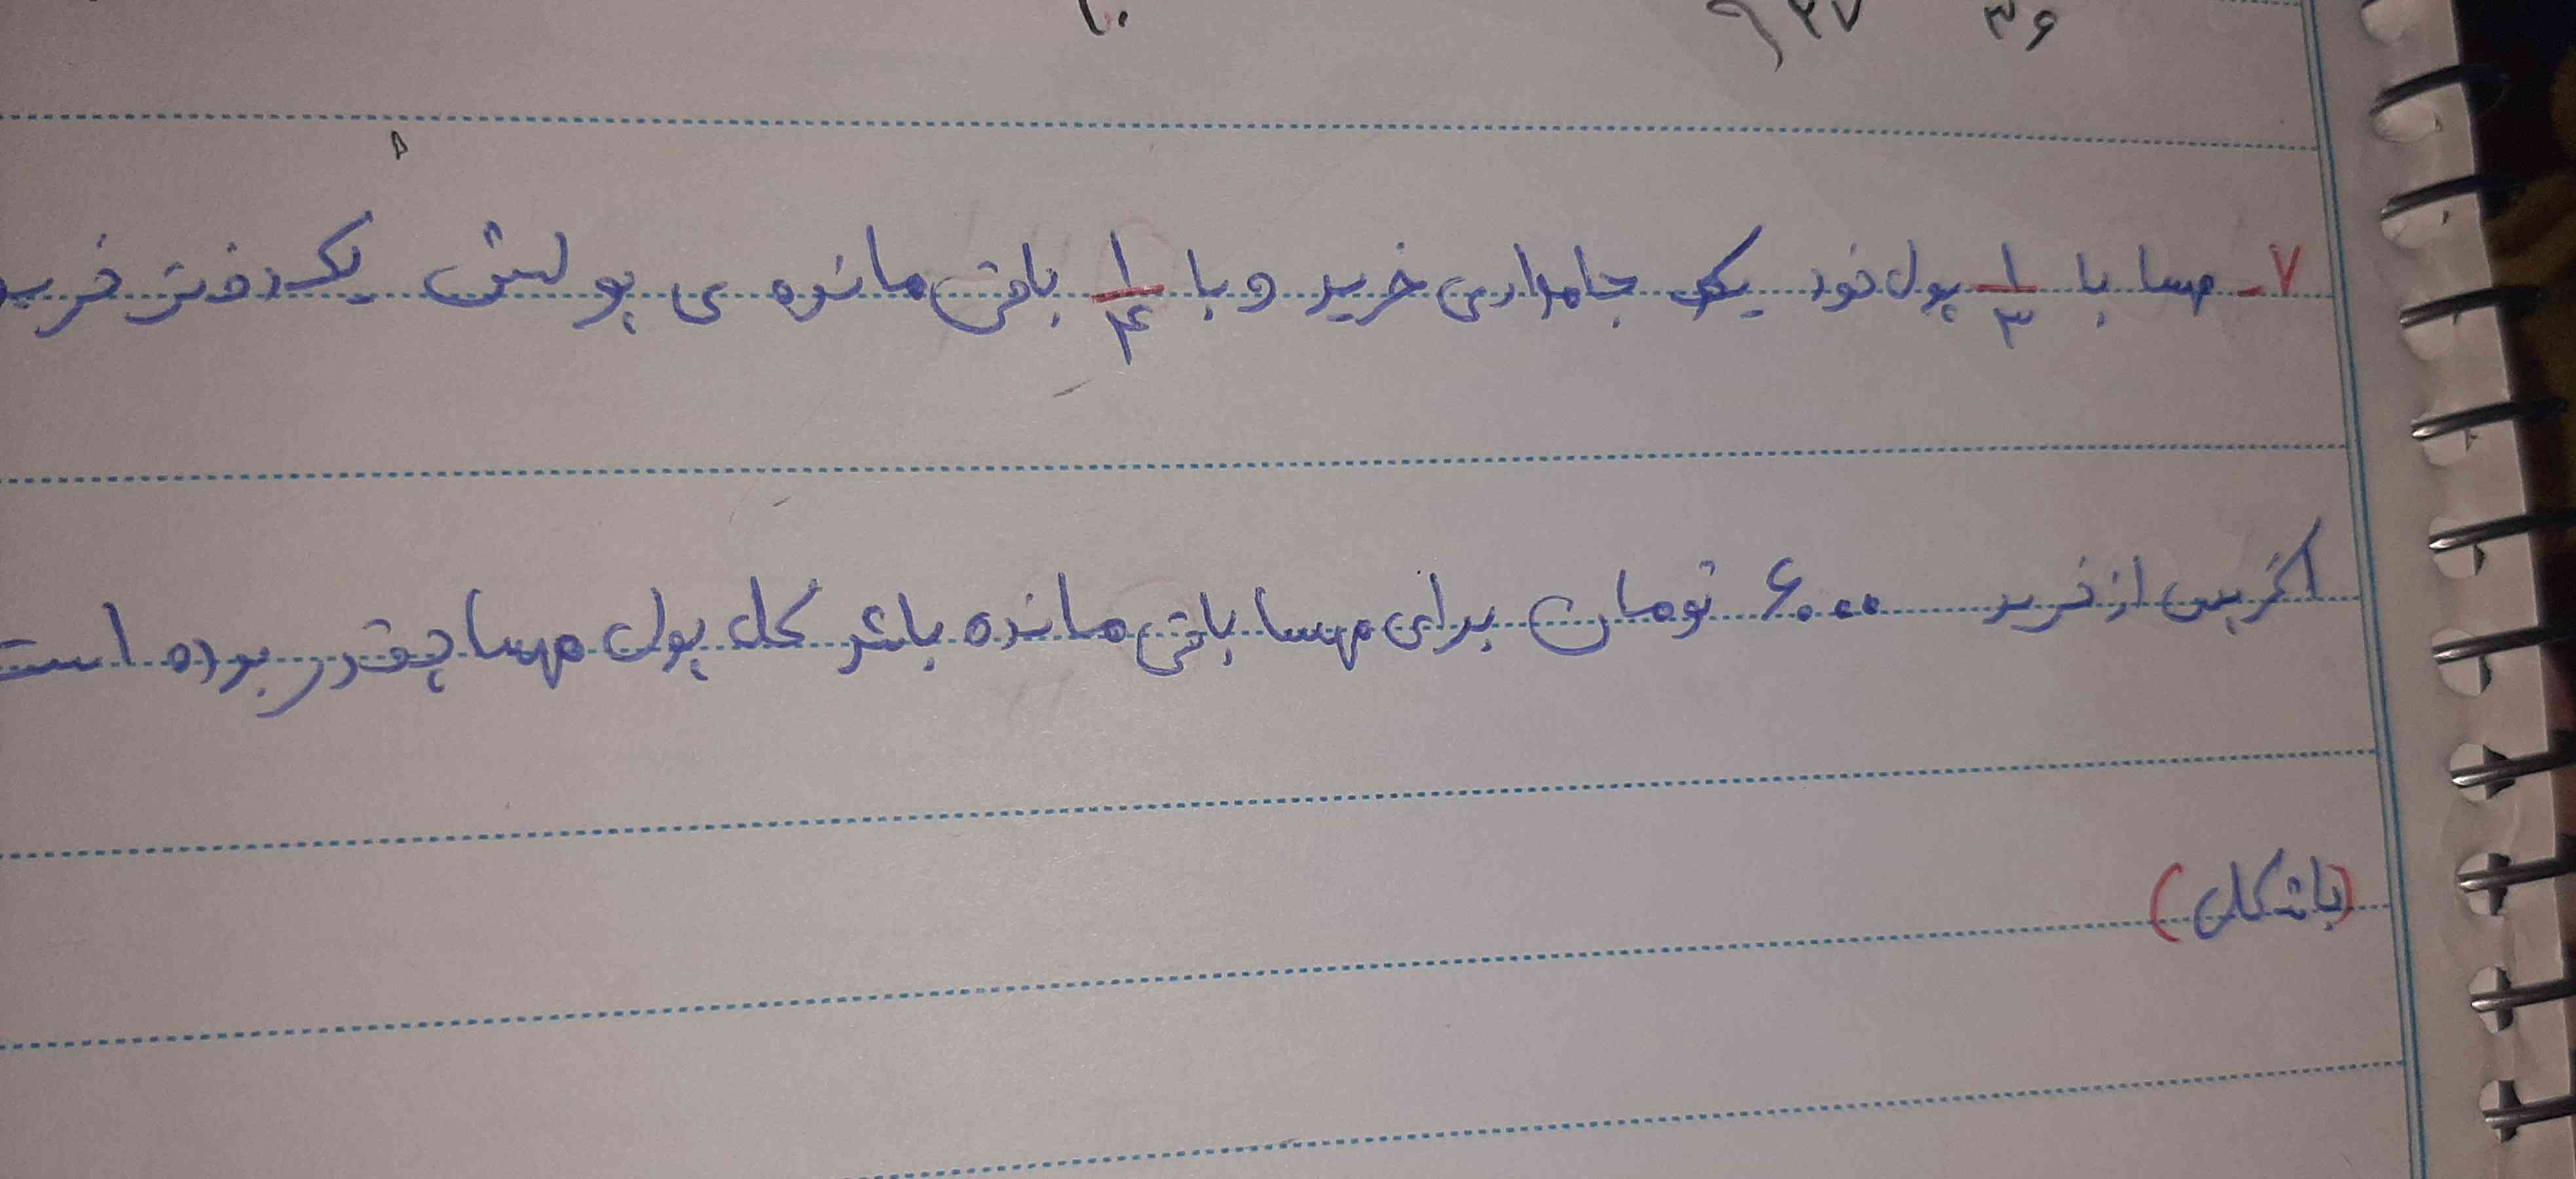 ۳۶ ۲۷
۷- مهسا با ۱/۳ پول خود یک جامدادی خرید و با ۱/۴ باقی مانده ی پولش یک دفتر خرید
اگر پس از خرید ۶۰۰۰ تومان برای مهسا باقی مانده باشد کل پول مهسا چقدر بوده است
(با شکل)